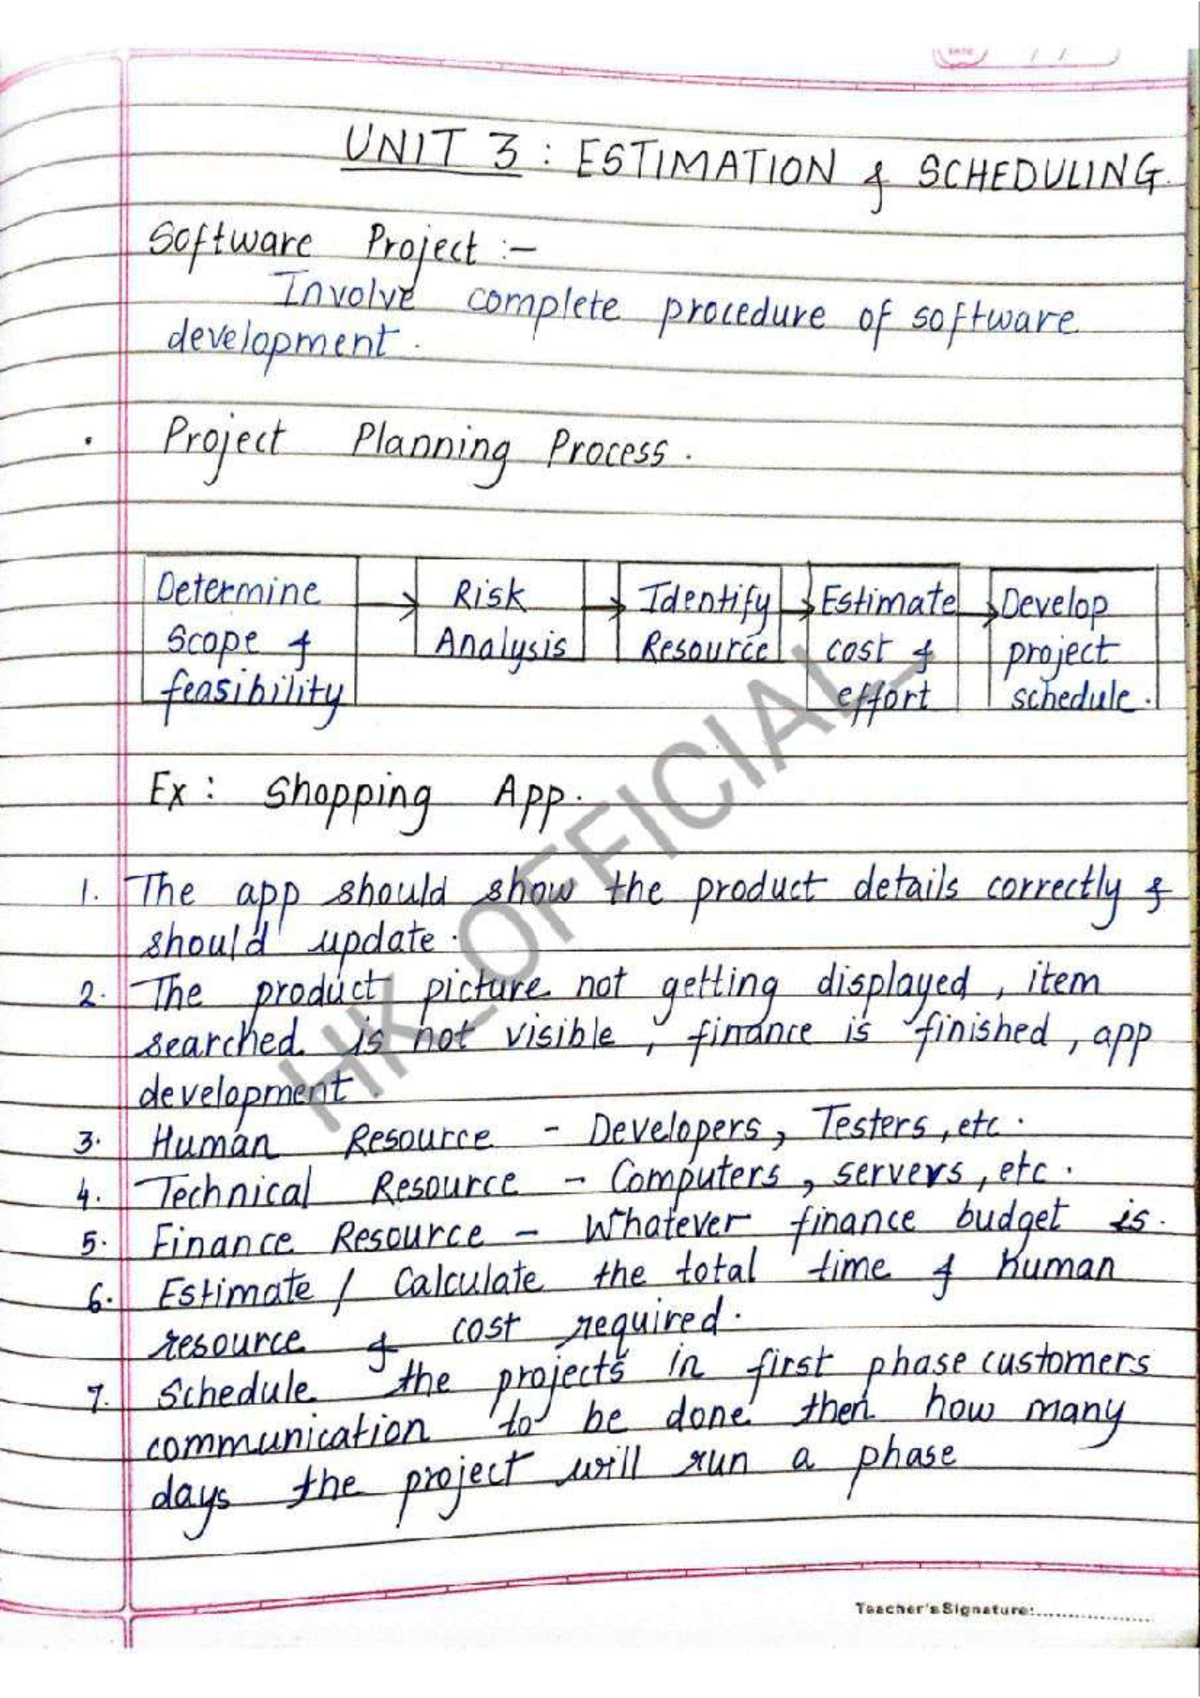 DATE / /
UNIT 3 : ESTIMATION & SCHEDULING.
Software Project :-
Involve complete procedure of software
development.
. Project Planning Process.
Determine Scope & feasibility → Risk Analysis → Identify Resource → Estimate cost & effort → Develop project schedule.
Ex: Shopping App.
1. The app should show the product details correctly &
should update.
2. The product picture not getting displayed, item
searched is not visible, finance is finished, app
development
3. Human Resource - Developers, Testers, etc.
4. Technical Resource - Computers, servers, etc.
5. Finance Resource - Whatever finance budget is.
6. Estimate / Calculate the total time & human
resource & cost required.
7. Schedule the projects in first phase customers
communication to be done then how many
days the project will run a phase
HK_OFFICIAL_
Teacher's Signature:................